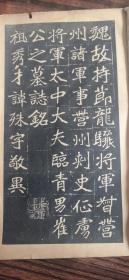 魏故持節龍驤將軍督營
州諸軍事營州刺史征虜
將軍太中大夫臨青男崔
公之墓誌銘
祖秀才諱殊字敬異